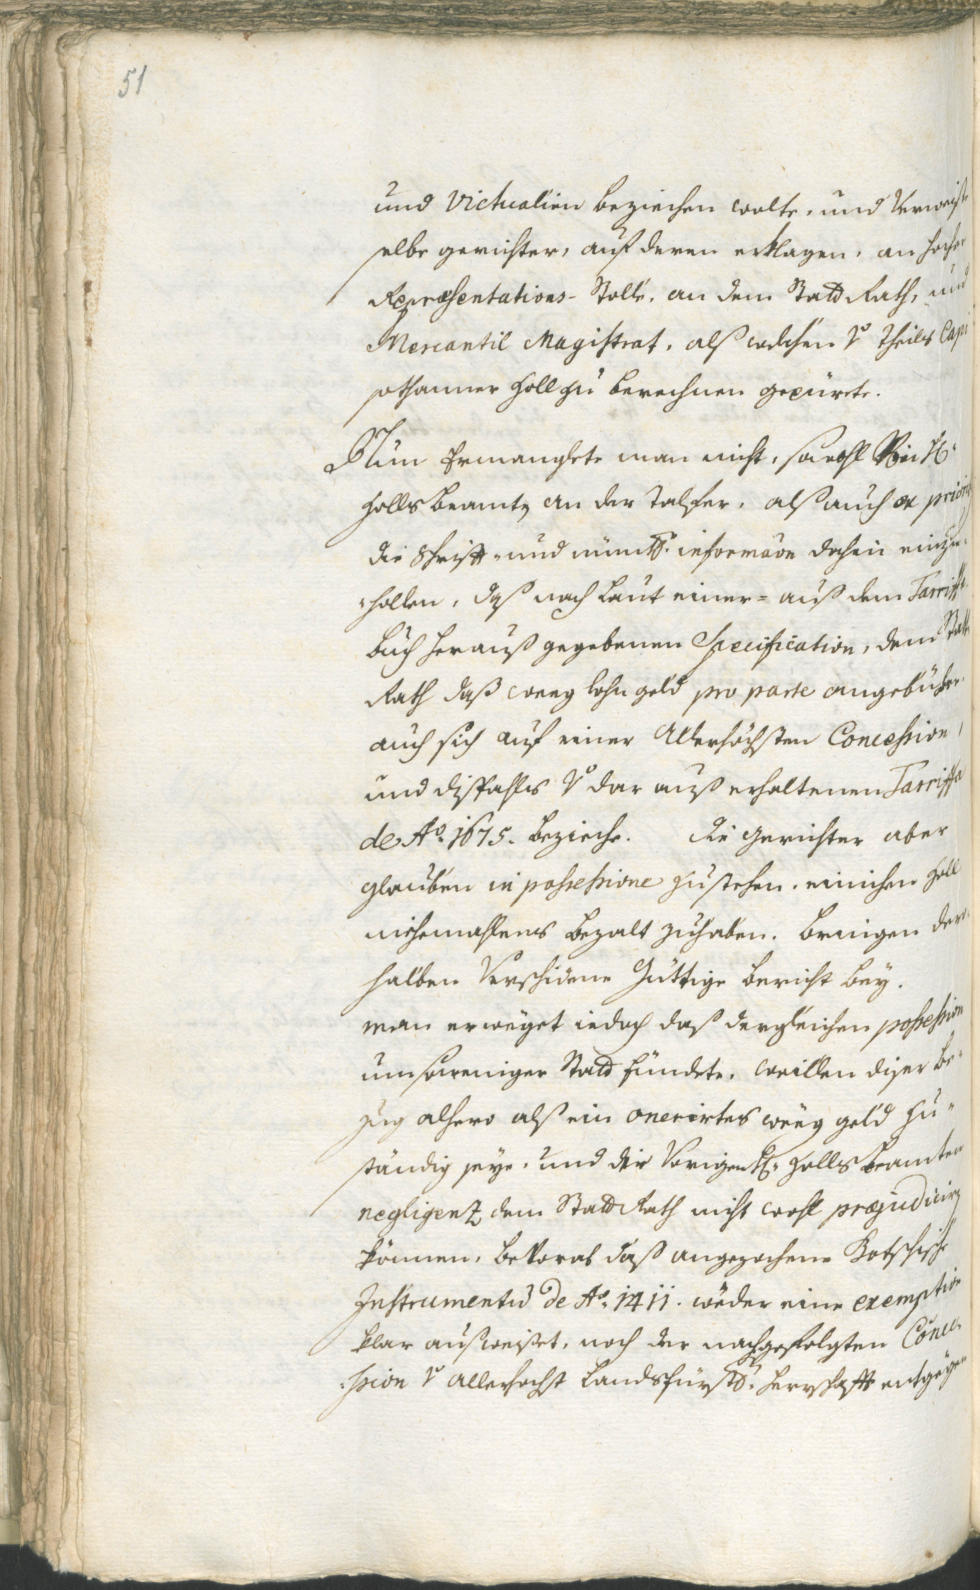 51
und Victualien beziechen wolte, und Verweist
selbe gerichter, auf deren erklagen, an hoche
Repræsentations-Stölle, an dem Statt Rath, und
Mercantil Magistrat, alß welchen
sothanner Zoll zu berechnen gepürete.
Nun Ermanglete man nicht, sowohl
Zolls beamte an der Talfer, alß auch ex
die Schrifft- und informãon dahin einzu
hollen, daß nach laut einer- auß dem Tarriffa
buch herauß gegebenen Specification, dem Statt
Rath daß weeg lohn geld pro parte angebühre
auch sich auf einer Allerhöchsten Concession
und dißfahls dar auß erhaltenen Tarriffa
de Aõ. 1675. beziche. Die gerichter aber
glauben in possessione zu stehen, einichen Zoll
niehemahlens bezalt zuhaben. bringen der
halben Verschidene Gültige bericht bey.
man erweget iedoch daß dergleichen possession
umsoweniger Statt fündete, weillen diser be-
zug alhero alß ein onerirtes weeg geld zu-
ständig seye, und die Vorigen Zolls beamten
negligenz dem Statt Rath nicht wohl præjudicirn
können, bevorab daß angezochene Botschische
Instrumentũ de Aõ. 1411. weder eine exemption
klar außweiset, noch der nachgefolgten Conces-
sion allerhochst Landsfürstl. herrschafft entgegen